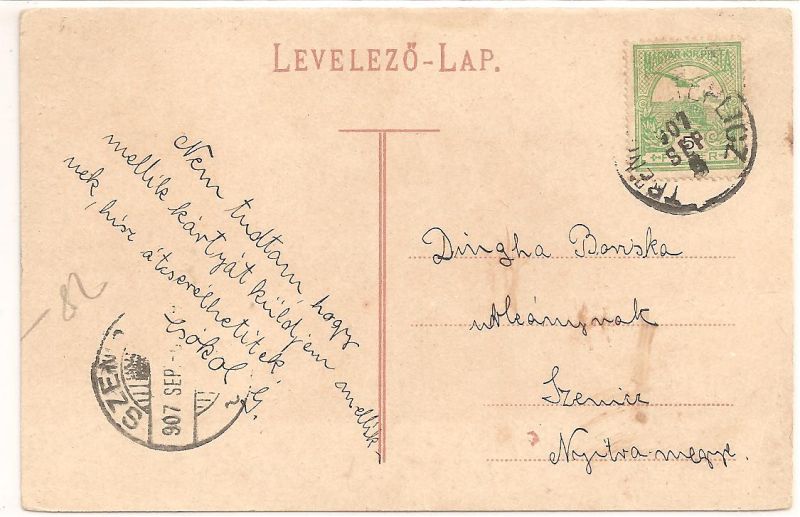 LEVELEZŐ-LAP.
MAGYAR KIR. POSTA
TEPLICZ
907 SEP
TRENCS
5
Nem tudtam, hogy
mellik kártyát küldjem mellik-
nek, hisz átcserélhetitek
Csókol G.
Dingha Boriska
urleánynak
Szenicz
Nyitra-megye.
-82
SZEN
907 SEP